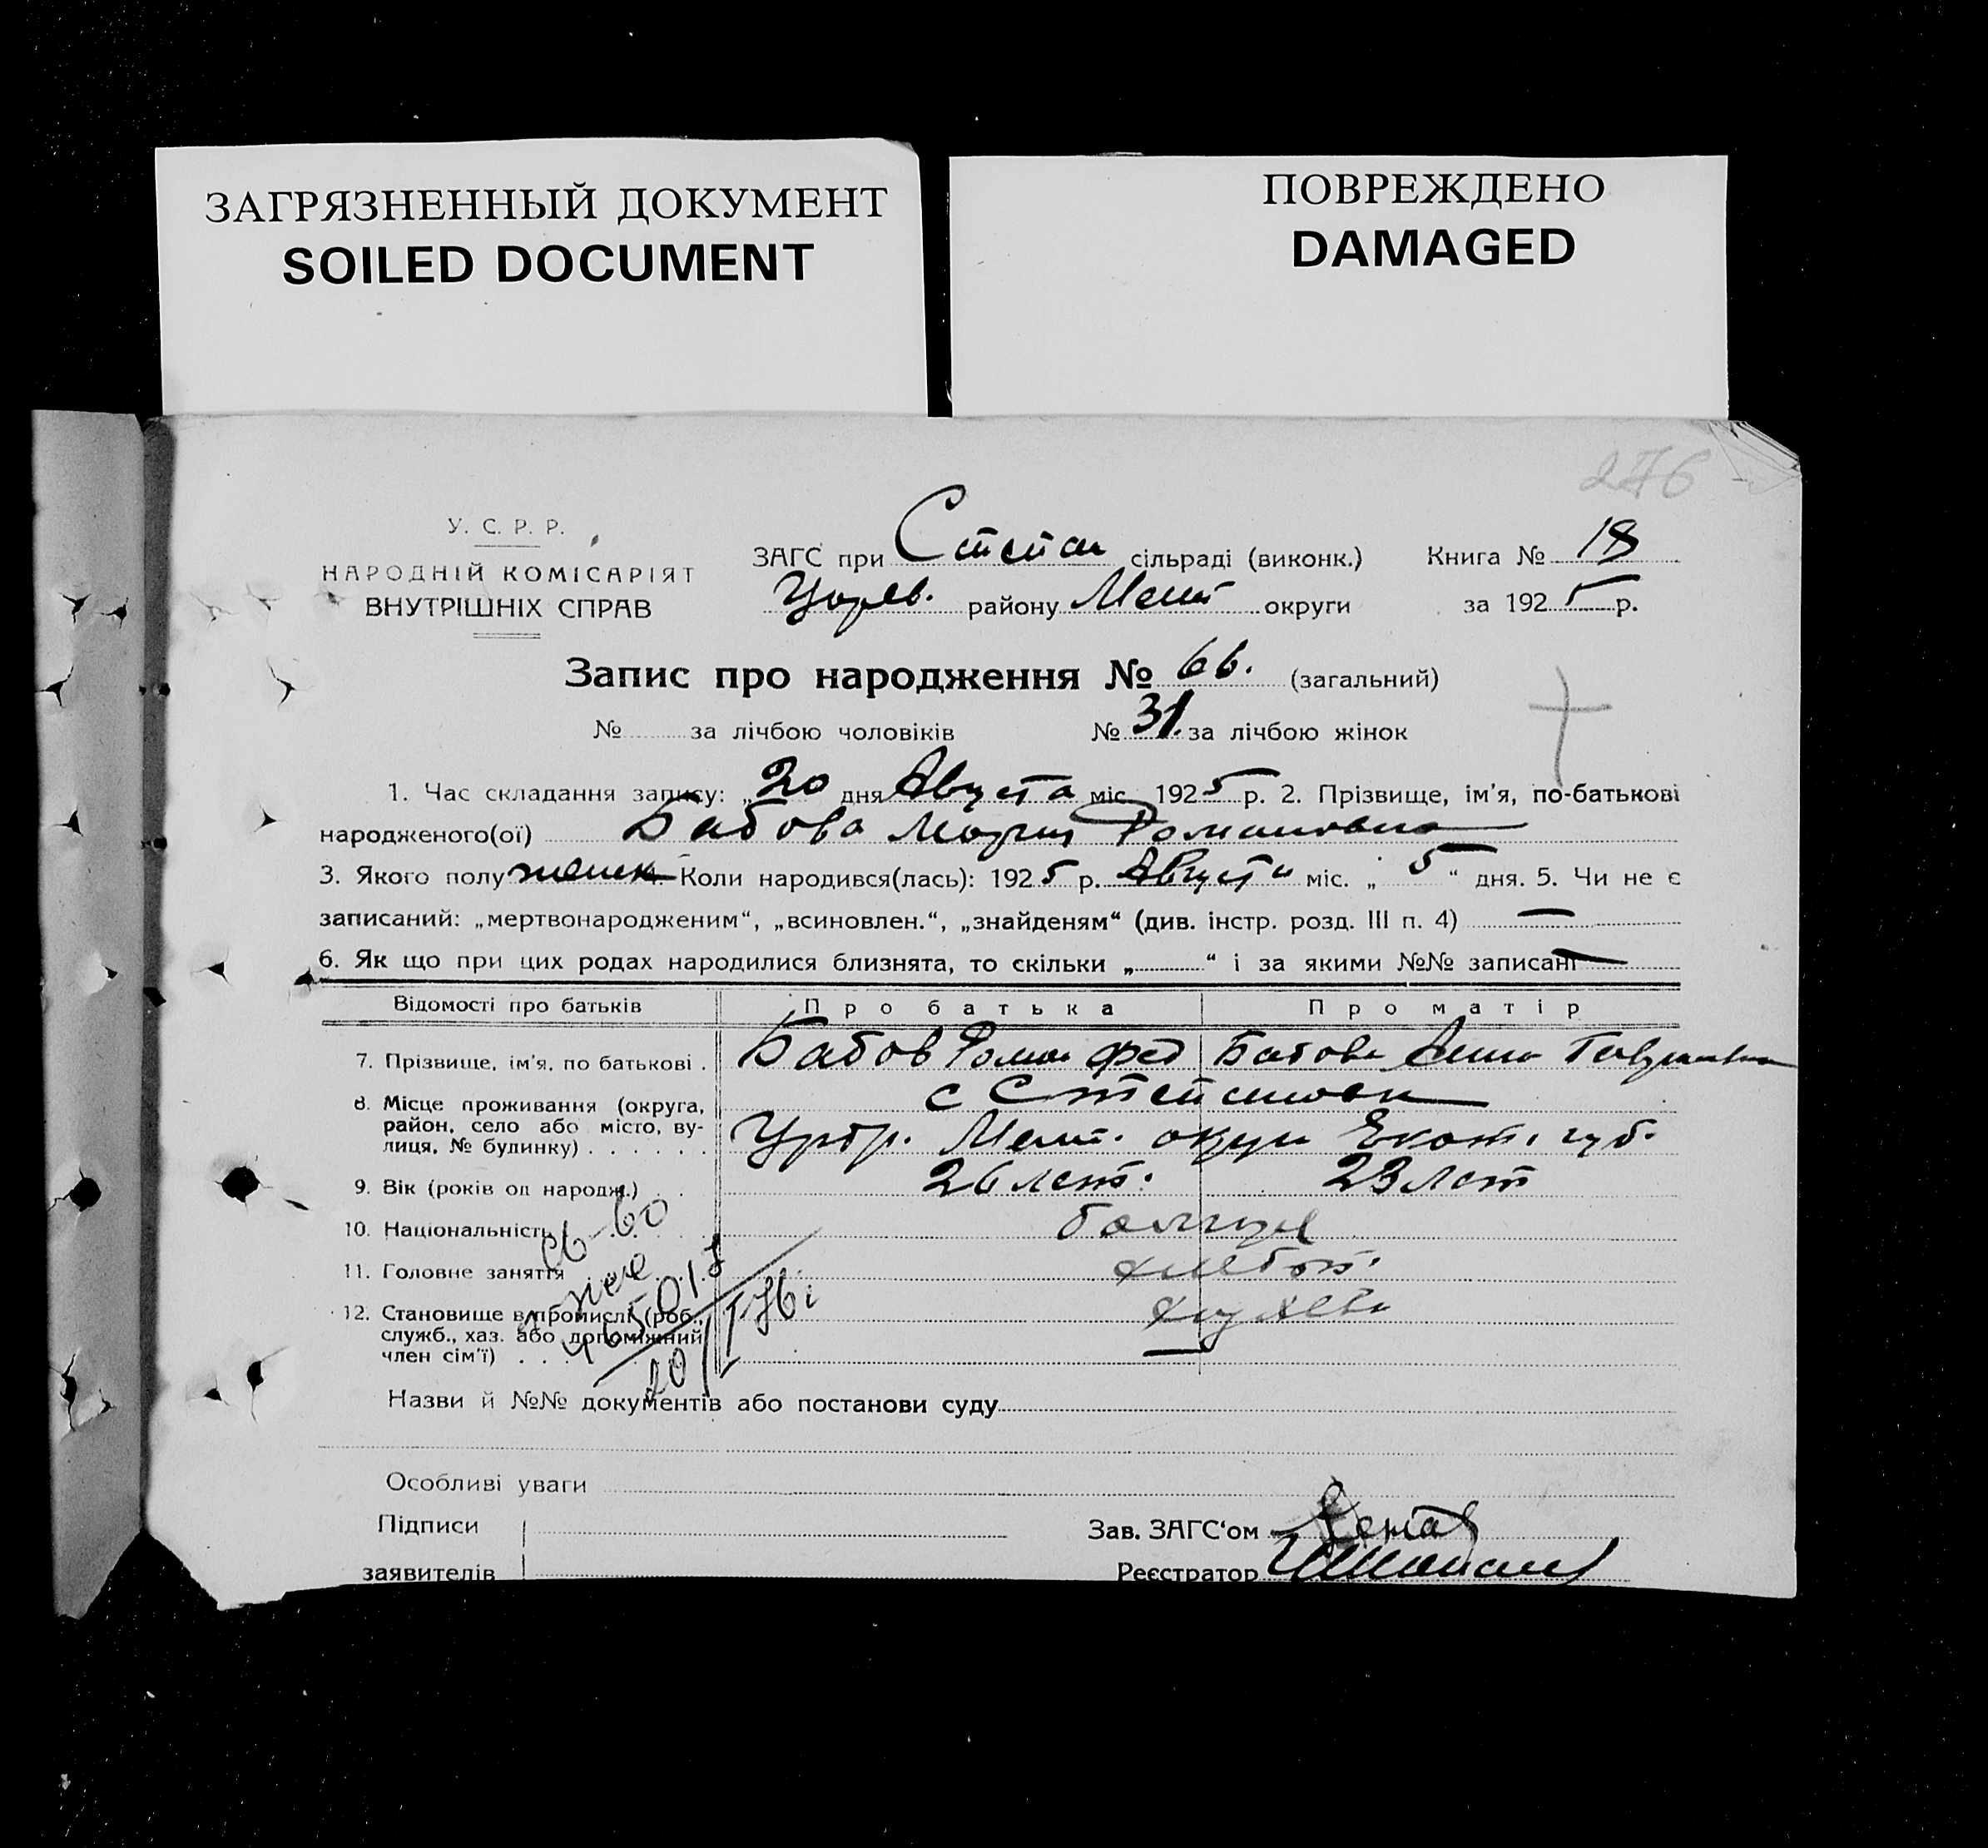 ЗАГРЯЗНЕННЫЙ ДОКУМЕНТ
SOILED DOCUMENT
ПОВРЕЖДЕНО
DAMAGED
276
У. С. Р. Р.
НАРОДНІЙ КОМІСАРІЯТ
ВНУТРІШНІХ СПРАВ
ЗАГС при Степан сільраді (виконк.)
району Мелит округи
Книга № 18
за 1925 р.
Запис про народження № 66. (загальний)
№ за лічбою чоловіків № 31. за лічбою жінок
1. Час складання запису: „20 дня Августа міс. 1925 р. 2. Прізвище, ім'я, по-батькові
народженого(ої) Бабова Мария Романовна
3. Якого полу женск 4. Коли народився(лась): 1925 р. Августа міс. „ 5 “ дня. 5. Чи не є
записаний: „мертвонародженим“, „всиновлен.“, „знайденям“ (див. інстр. розд. III п. 4) —
6. Як що при цих родах народилися близнята, то скільки „ “ і за якими №№ записані —
Відомості про батьків Про батька Про матір
7. Прізвище, ім'я, по батькові . Бабов Роман Фед Бабова Анна
8. Місце проживання (округа, район, село або місто, вулиця, № будинку) . . . . . . с Степановка
Мелит. округ Екат. губ.
9. Вік (років од народж.) . . 26 лет. 23 лет
10. Національність болгары
11. Головне заняття хлебоп.
12. Становище в промислі (роб., служб., хаз. або допоміжний член сім'ї) . . .
Св-во
Назви й №№ документів або постанови суду
Особливі уваги
Підписи
заявителів
Зав. ЗАГС‘ом
Реєстратор